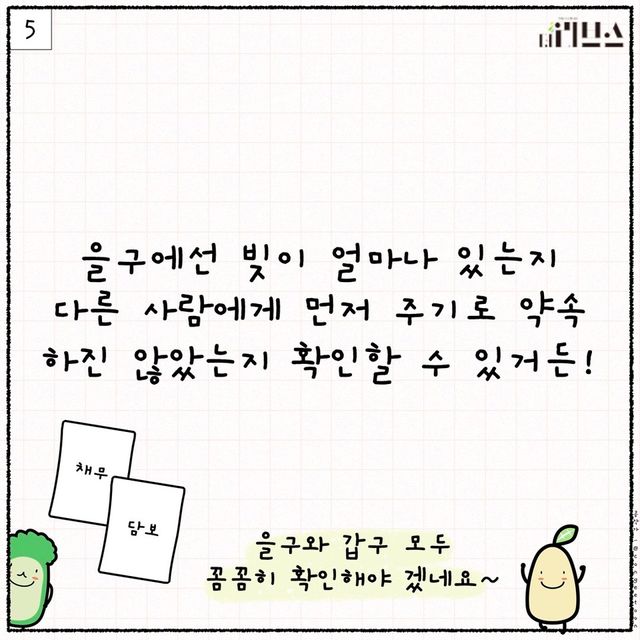 5
더리브스
을구에선 빚이 얼마나 있는지
다른 사람에게 먼저 주기로 약속
하진 않았는지 확인할 수 있거든!
채무
담보
을구와 갑구 모두
꼼꼼히 확인해야 겠네요~